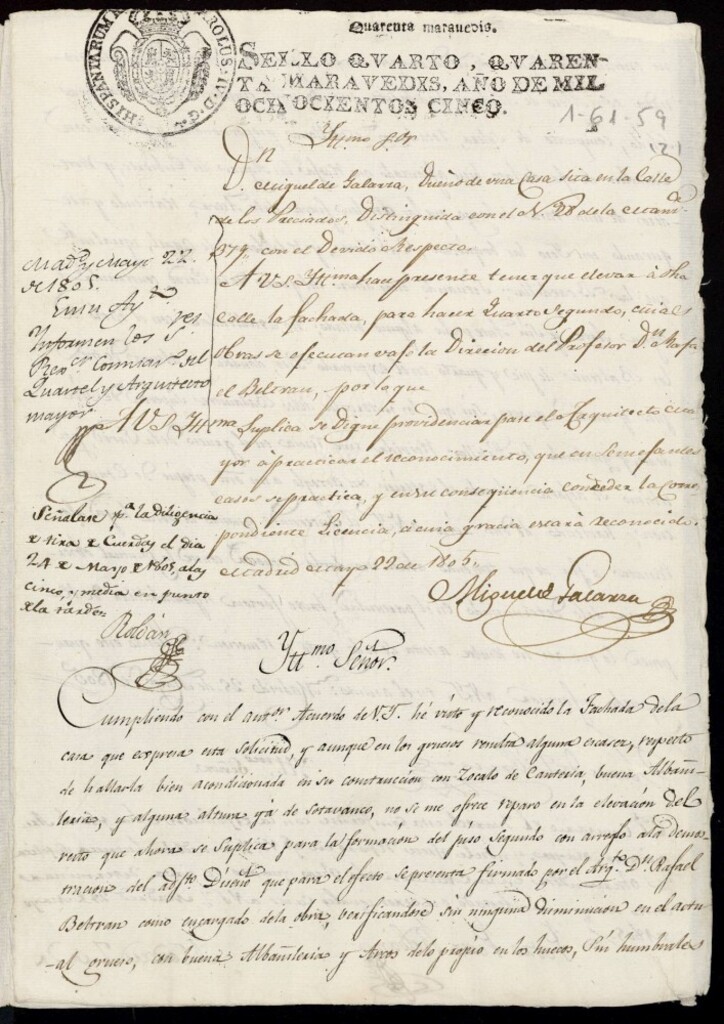 Quarenta maravedis.
HISPANIARUM CAROLUS IV D G
SELLO QVARTO, QVAREN-
TA MARAVEDIS, AÑO DE MIL
OCHOCIENTOS CINCO.
1-61-59
Yttmo Sor
Dn
D. Miguel de Galarza, Dueño de una Casa sita en la Calle
de los Preciados, Distinguida con el N. 28 de la Manz.
379, con el Devido Respecto.
A V.S. Yttma hace presente tener que elevar à dha
Calle la fachada, para hacer Quarto Segundo, cuias
Obras se efecutan vafo la Direcion del Profesor Dn. Rafa
el Beltran, por lo que
A V.S. Yttma Suplica se digne providenciar pase el Arquitecto ma
yor à practicar el reconocimiento, que en Semefantes
casos se practica, y en su conseqüencia conceder la Corres
pondiente Licencia, à cuia gracia estarà reconocido.
Madrid Mayo 22 de 1805.
Miguel Galarza
Mad. y Mayo 22
de 1805.
En su Ayto
Informen los Sres
Rexor Comisario del
Quartel y Arquitecto
mayor
Señalase pa. la diligencia
de tira de Cuerdas el dia
24 de Mayo de 1805, a las
cinco, y media en punto
de la tarde.
Roldán
Yttmo Señor.
Cumpliendo con el antor Acuerdo de V.I. hé visto y reconocido la Fachada de la
casa que expresa esta Solicitud, y aunque en los gruesos resulta alguna escasez, respecto
de hallarla bien acondicionada in su construccion con Zocalo de Canteria, buena Albañi-
leria, y alguna altura yá de Sotavanco, no se me ofrece reparo en la elevacion del
resto que ahora se Suplica para la formacion del piso segundo con arreglo a la demos-
tracion del adjto Diseño que para el efecto se presenta firmado por el Arqto Dn Rafael
Beltran como encargado de la obra, verificandose sin ninguna diminucion en el actu-
-al grueso, con buena Albañileria y Arcos de lo propio en los huecos, sin humbrales